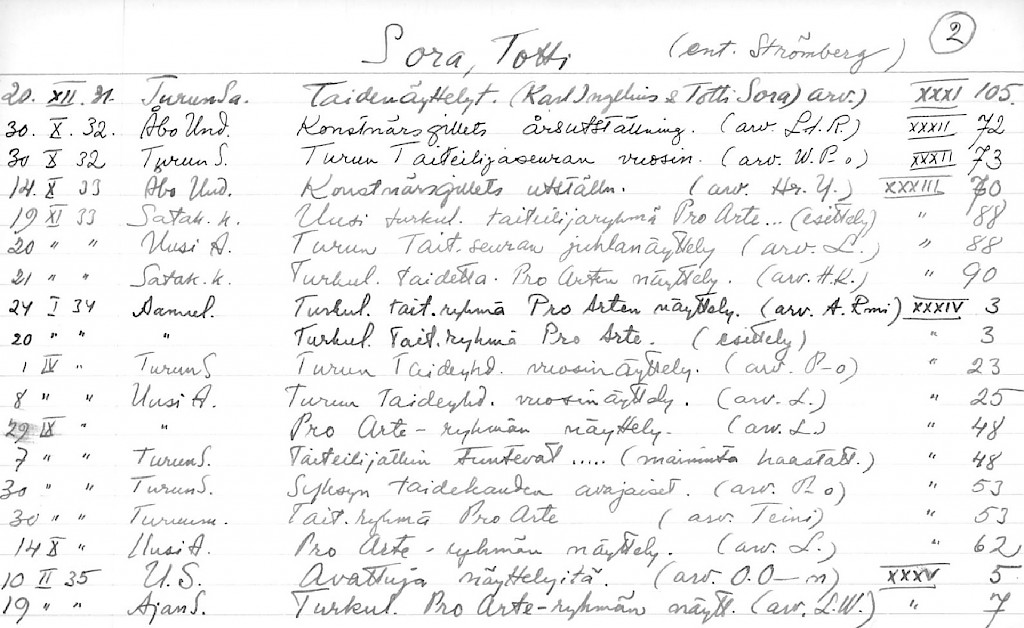 2
Sora, Totti (ent. Strömberg)
20. XII. 31. TurunSa. Taidenäyttelyt. (Karl Inglius & Totti Sora) arv.) XXXI 105.
30. X. 32. Åbo Und. Konstnärsgillets årsutställning. (arv. L.A.R.) XXXII 72
30 X 32 Turun S. Turun Taiteilijaseuran vuosin. (arv. W.P-o) XXXII 73
14. X 33 Åbo Und. Konstnärsgillets utställn. (arv. Hr. Y.) XXXIII 70
19 XI 33 Satak. k. Uusi turkul. taiteilijaryhmä Pro Arte... (esittely) " 88
20 " " Uusi A. Turun Tait.seuran juhlanäyttely (arv. L.) " 88
21 " " Satak. k. Turkul. taidetta. Pro Arten näyttely. (arv. H.K.) " 90
24 I 34 Aamul. Turkul. tait.ryhmä Pro Arten näyttely. (arv. A. Rmi) XXXIV 3
20 " " " Turkul. Tait.ryhmä Pro Arte. (esittely) " 3
1 IV " Turun S Turun Taideyhd. vuosinäyttely. (arv. P-o) " 23
8 " " Uusi A. Turun Taideyhd. vuosinäyttely. (arv. L.) " 25
29 IX " " Pro Arte-ryhmän näyttely. (arv. L.) " 48
7 " " Turun S. Taiteilijatkin tuntevat ..... (maininta haastatt.) " 48
30 " " Turun S. Syksyn taidekauden avajaiset. (arv. P-o) " 53
30 " " Turunm. Tait.ryhmä Pro Arte (arv. Teini) " 53
14 X " Uusi A. Pro Arte-ryhmän näyttely. (arv. L.) " 62
10 II 35 U.S. Avattuja näyttelyitä. (arv. O.O-n) XXXV 5
19 " " Ajan S. Turkul. Pro Arte-ryhmän näytt. (arv. L.W.) " 7